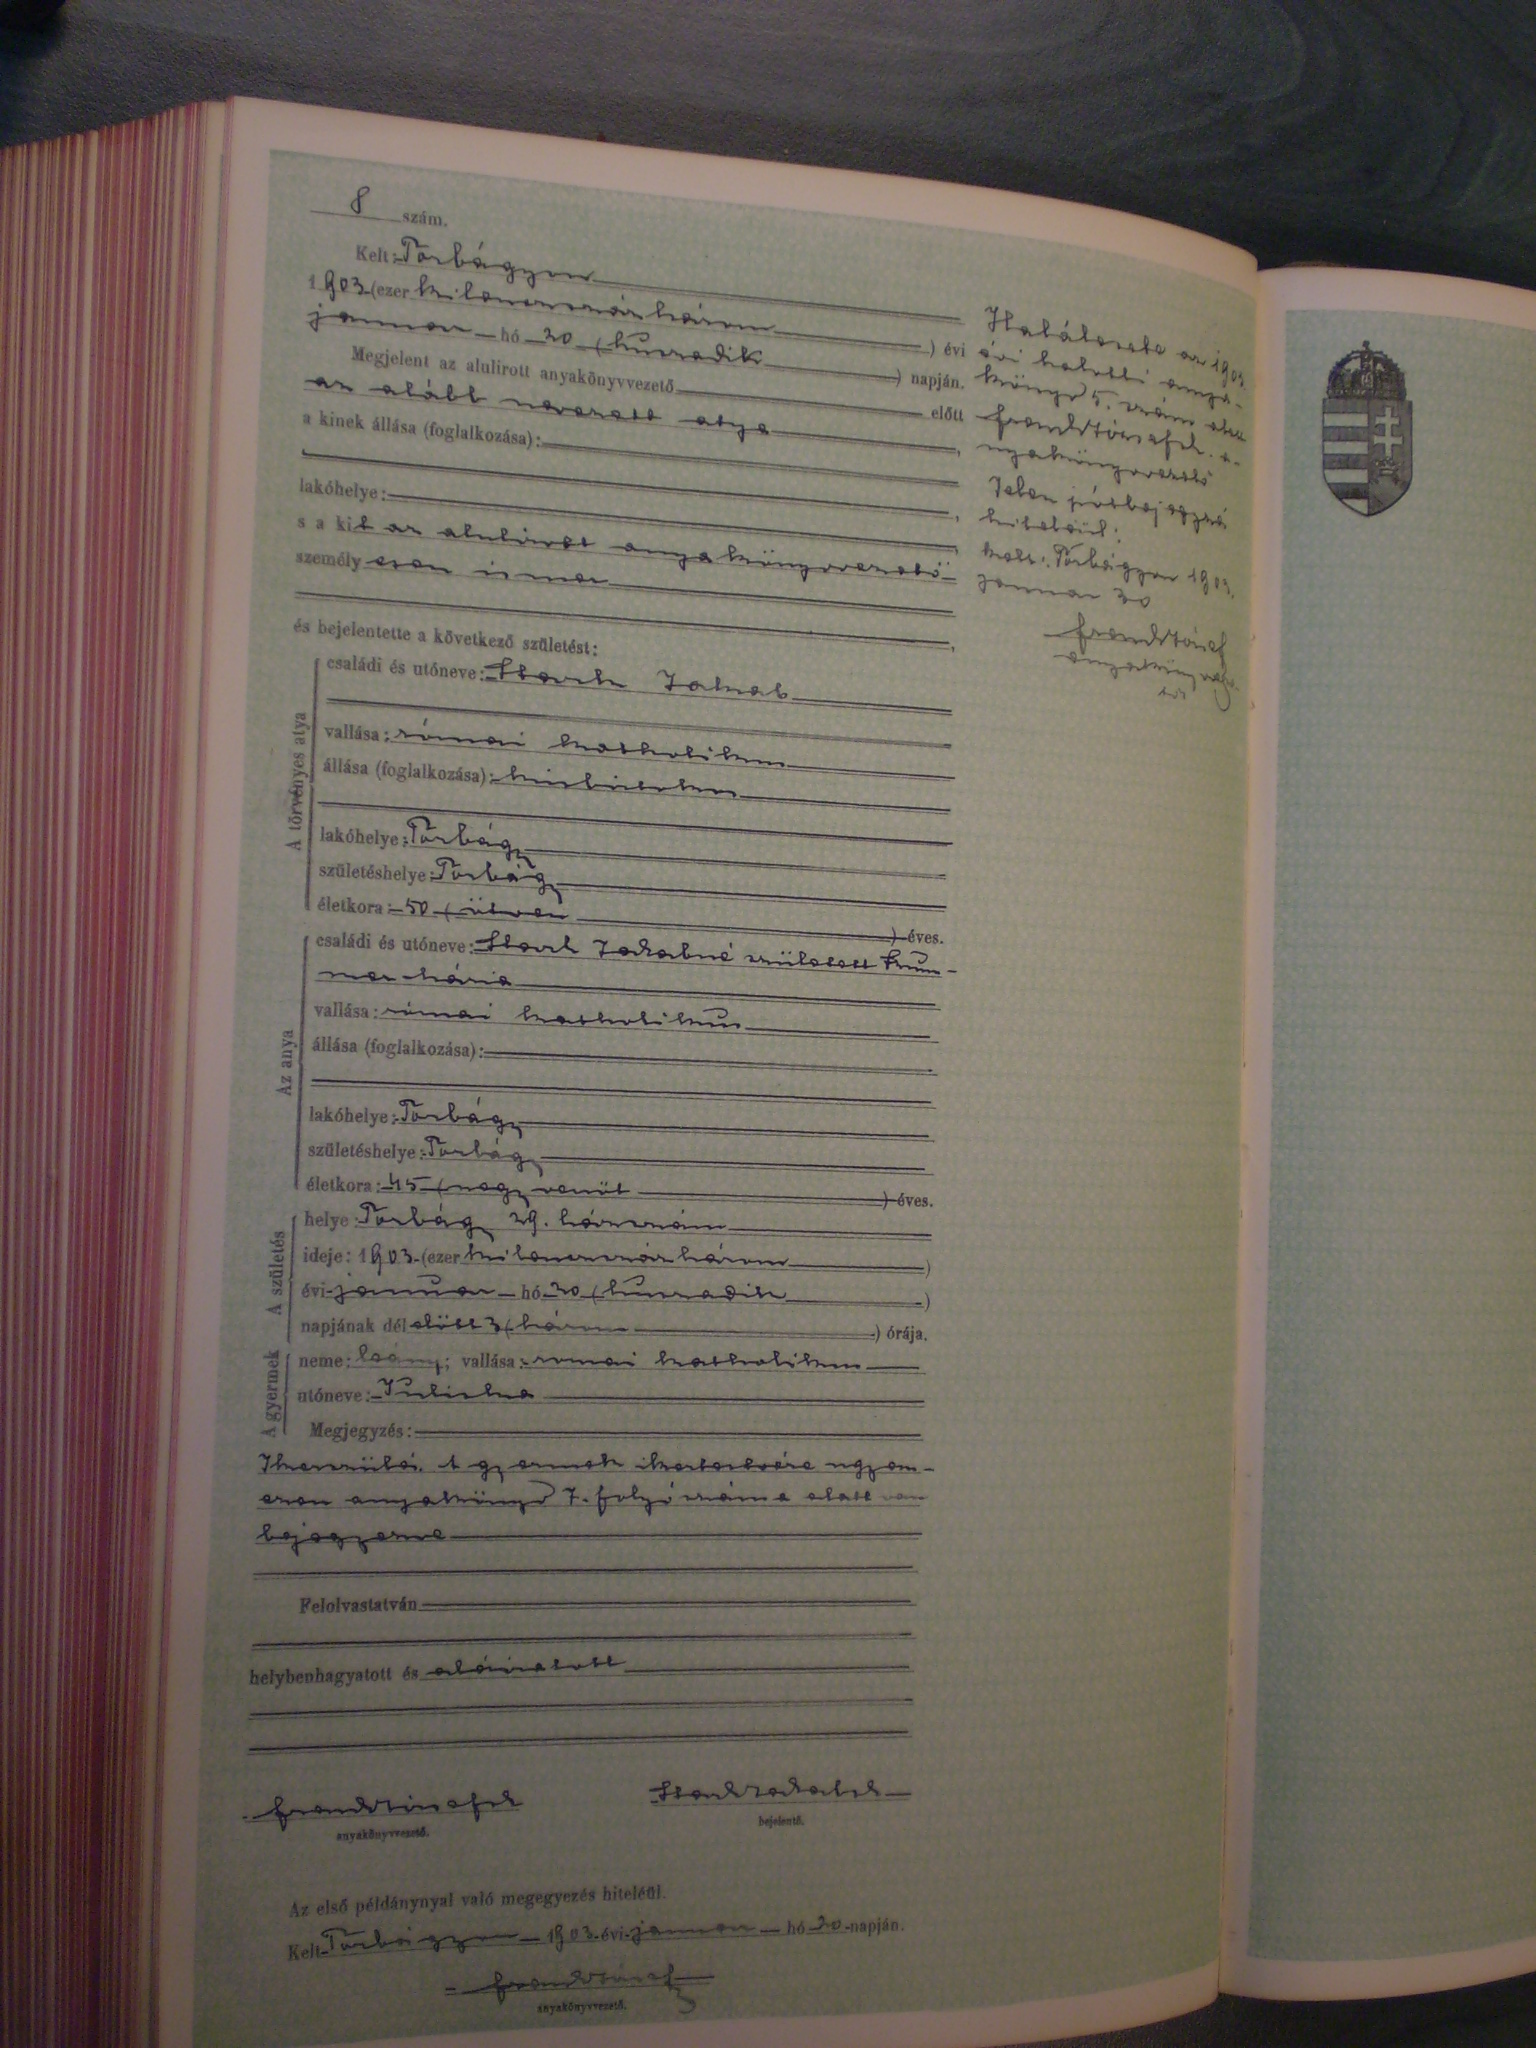 8 szám.
Kelt: Torbágyon
1903 (ezer kilencszázhárom ) évi
januar hó 20 (huszadik ) napján.
Megjelent az alulirott anyakönyvvezető előtt
az alább nevezett atya ,
a kinek állása (foglalkozása):
lakóhelye: ,
s a kit az alulirott anyakönyvvezető
személyesen ismer ,
és bejelentette a következő születést:
A törvényes atya
családi és utóneve: Stark Jakab
vallása: római katholikus
állása (foglalkozása): kisbirtokos
lakóhelye: Torbágy
születéshelye: Torbágy
életkora: 50 (ötven ) éves.
Az anya
családi és utóneve: Stark Jakabné született Krum-
mer Mária
vallása: római katholikus
állása (foglalkozása):
lakóhelye: Torbágy
születéshelye: Torbágy
életkora: 45 (negyvenöt ) éves.
A születés
helye: Torbágy 29. házszám
ideje: 1903 (ezer kilencszázhárom )
évi januar hó 20 (huszadik )
napjának dél előtt 3 (három ) órája.
A gyermek
neme: leány; vallása: romai katholikus
utóneve: Juliska
Megjegyzés:
Ikerszülés. A gyermek ikertestvére ugyan-
ezen anyakönyv 7. folyó száma alatt van
bejegyezve
Felolvastatván
helybenhagyatott és aláiratott
anyakönyvvezető.
Stark Jakab
bejelentő.
Az első példánynyal való megegyezés hiteléül.
Kelt Torbágyon 1903 évi januar hó 20 napján.
anyakönyvvezető.
Halálesete az 1903
évi halotti anya-
könyv 5. szám alatt
anyakönyvvezető
Jelen utóbejegyzés
hiteléül:
Kelt: Torbágyon 1903.
januar 20
anyakönyvveze-
tő